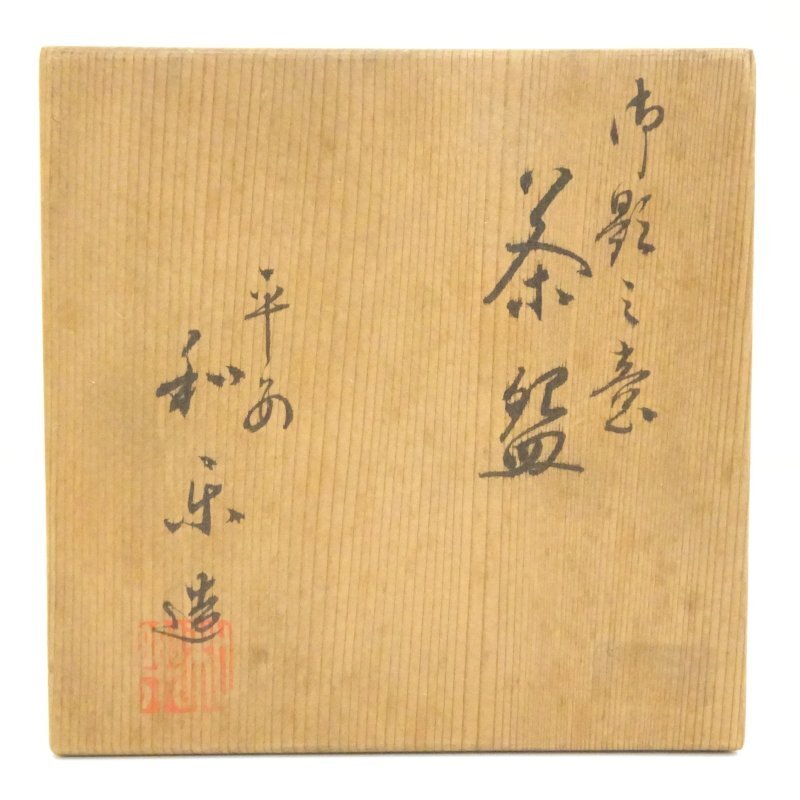 御影之臺
茶盌
平安
和楽造